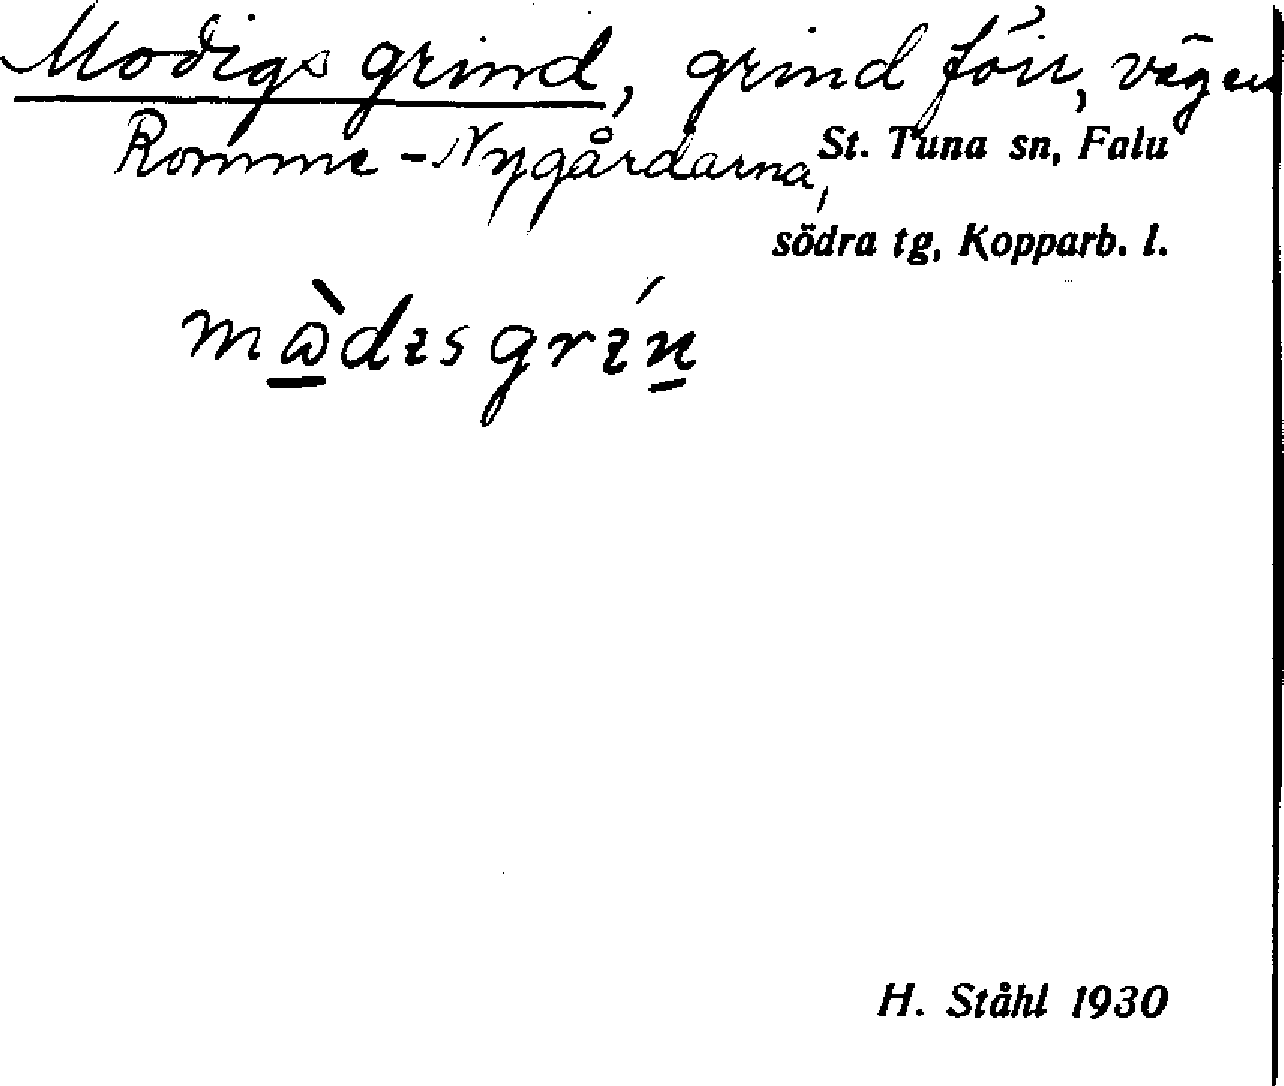 Modigs grind, grind förr, vägen
Romme - Nygårdarna,
St. Tuna sn, Falu
södra tg, Kopparb. l.
mὼ̲dɪsgrɪ́n̲
H. Ståhl 1930